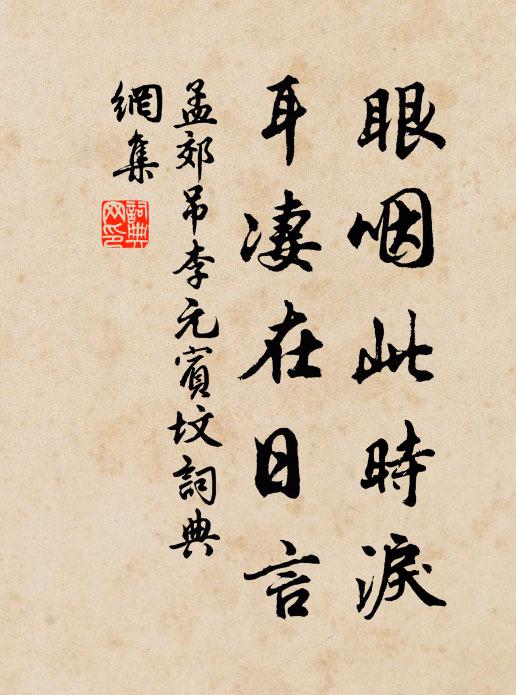 眼咽此時淚
耳凄在日言
孟郊吊李元賓墳詞典
網集
詞典
網印